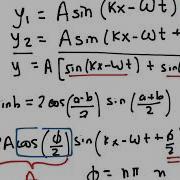 y₁ = A sin (Kx - ωt)
y₂ = A sin (Kx - ωt +
y = A [sin(Kx - ωt) + sin
inb = 2 cos(a-b/2) sin (a+b/2)
A cos(ϕ/2) sin(Kx - ωt + ϕ/2
ϕ = nπ n